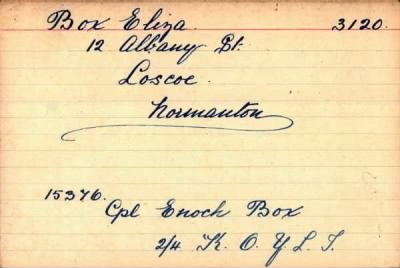 Box Eliza. 3120.
12 Albany St.
Loscoe.
Normanton
15376.
Cpl Enoch Box
2/4 K. O. Y. L. I.